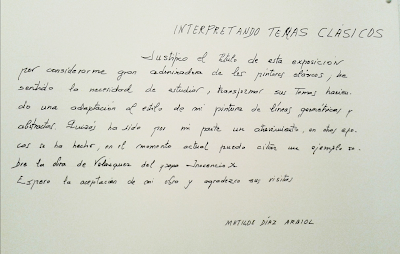 INTERPRETANDO TEMAS CLÁSICOS
Justifico el título de esta exposición
por considerarme gran admiradora de los pintores clásicos, he
sentido la necesidad de estudiar, transformar sus Temas hacien
do una adaptación al estilo de mi pintura de líneas geométricas y
abstractas. Quizás ha sido por mi parte un atrevimiento, en otras épo
cas se ha hecho, en el momento actual puedo citar un ejemplo so
bre la obra de Velázquez del papa Inocencio X
Espero la aceptación de mi obra y agradezco sus visitas
MATILDE DÍAZ ARBIOL